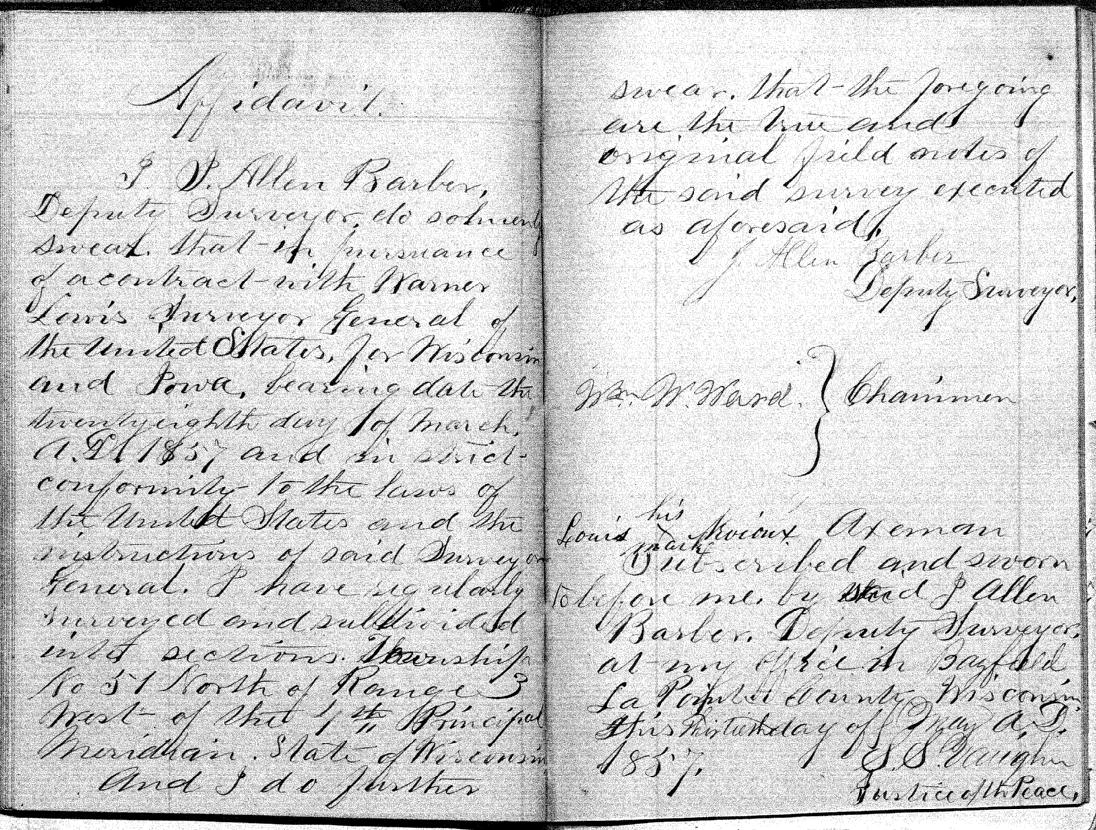 Affidavit.
I J. Allen Barber,
Deputy Surveyor, do solmenly
swear. that in pursuance
of a contract with Warner
Lewis Surveyor General of
the United States, for Wisconsin
and Iowa, bearing date the
twentyeighth day of March,
A.D. 1857 and in strict
conformity to the laws of
the United States and the
instructions of said Surveyor
General. I have regularly
surveyed and subdivided
into sections. Township
No 51 North of Range 3
West of the 4th Principal
Meridian. State of Wisconsin
And I do further
swear. that the foregoing
are the true and
original field notes of
the said survey executed
as aforesaid,
J Allen Barber
Deputy Surveyor.
Wm W. Ward. } Chainmen
his
Louis Axeman
mark
Subscribed and sworn
to before me. by said J Allen
Barber. Deputy Surveyor.
at my office in Bayfield
La Pointe County Wisconsin
this day of May A.D.
1857. S. S. Vaughn
Justice of the Peace.